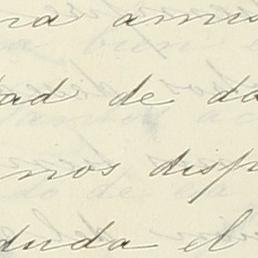 na amis
tad de da
nos disp
duda el